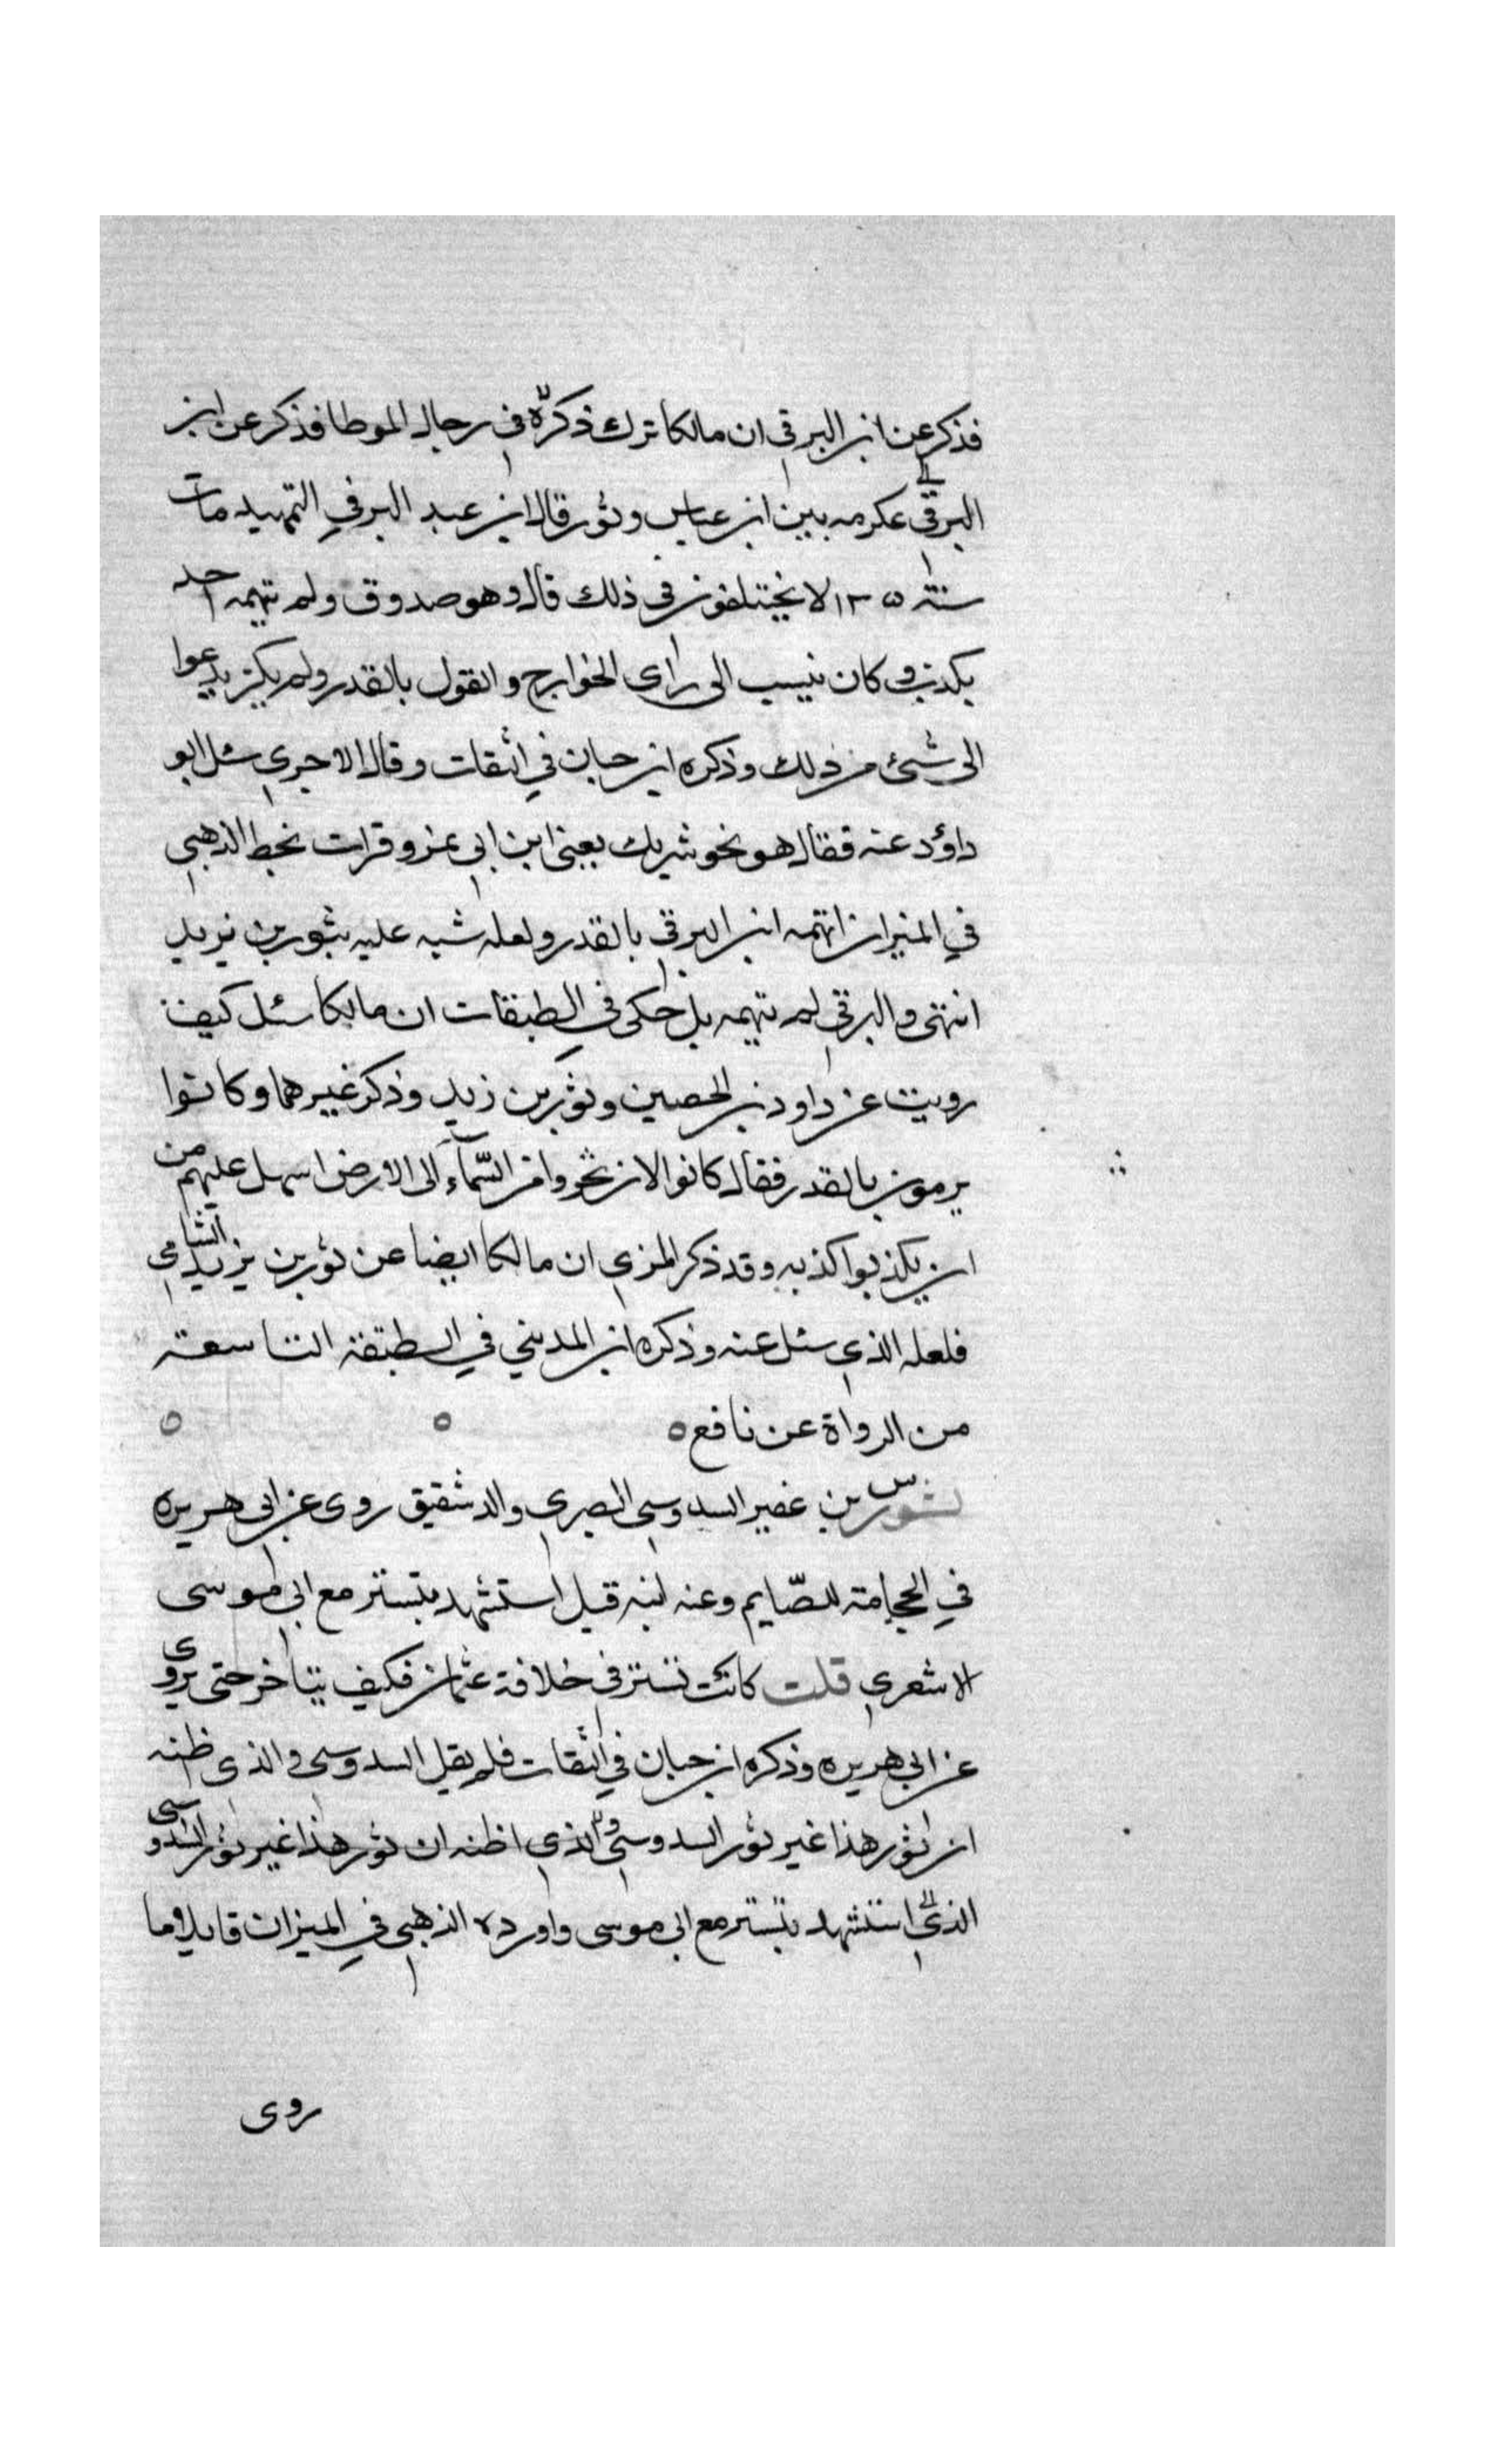 فذكر عن ابن البرقي ان مالكا ترك ذكره في رجال الموطا فذكر عن ابن
البرقي عكرمه بين ابن عباس وثور قال ابن عبد البر في التمهيد مات
سنة ١٣٥ لا يختلفون في ذلك قال وهو صدوق ولم يتهمه احد
بكذب وكان ينسب الى راى الخوارج والقول بالقدر ولم يكن يدعوا
الى شئ من ذلك وذكره ابن حبان في الثقات وقال الاجري سئل ابو
داؤد عنه فقال هو نحو شريك يعني ابن ابي نمر وقرات بخط الذهبي
في الميزان اتهمه ابن البرقي بالقدر ولعله شبه عليه بثور بن يزيد
انتهى والبرقي لم يتهمه بل حكى في الطبقات ان مالكا سئل كيف
رويت عن داود بن الحصين وثور بن زيد وذكر غيرهما وكانوا
يرمون بالقدر فقال كانوا لان يخروا من السّمآء الى الارض اسهل عليهم من
ان يكذبوا كذبه وقد ذكر المزي ان مالكا ايضا عن ثور بن يزيد الشامي
فلعله الذي سئل عنه وذكره ابن المديني في الطبقة التاسعة
من الرواة عن نافع ٥ ٥ ٥
س ثور بن عفير السدوسي البصري والد شقيق روى عن ابي هريره
في الحجامة للصّايم وعنه ابنه قيل استشهد بتستر مع ابي موسى
الاشعري قلت كانت تستر في خلافة عثمان فكيف يتاخر حتى يروى
عن ابي هريره وذكره ابن حبان في الثقات فلم يقل السدوسي والذي ظنه
ان ثور هذا غير ثور السدوسي والذي اظنه ان ثور هذا غير ثور السدوسي
الذي استشهد بتستر مع ابي موسى واورده الذهبي في الميزان قايلا وما
روى